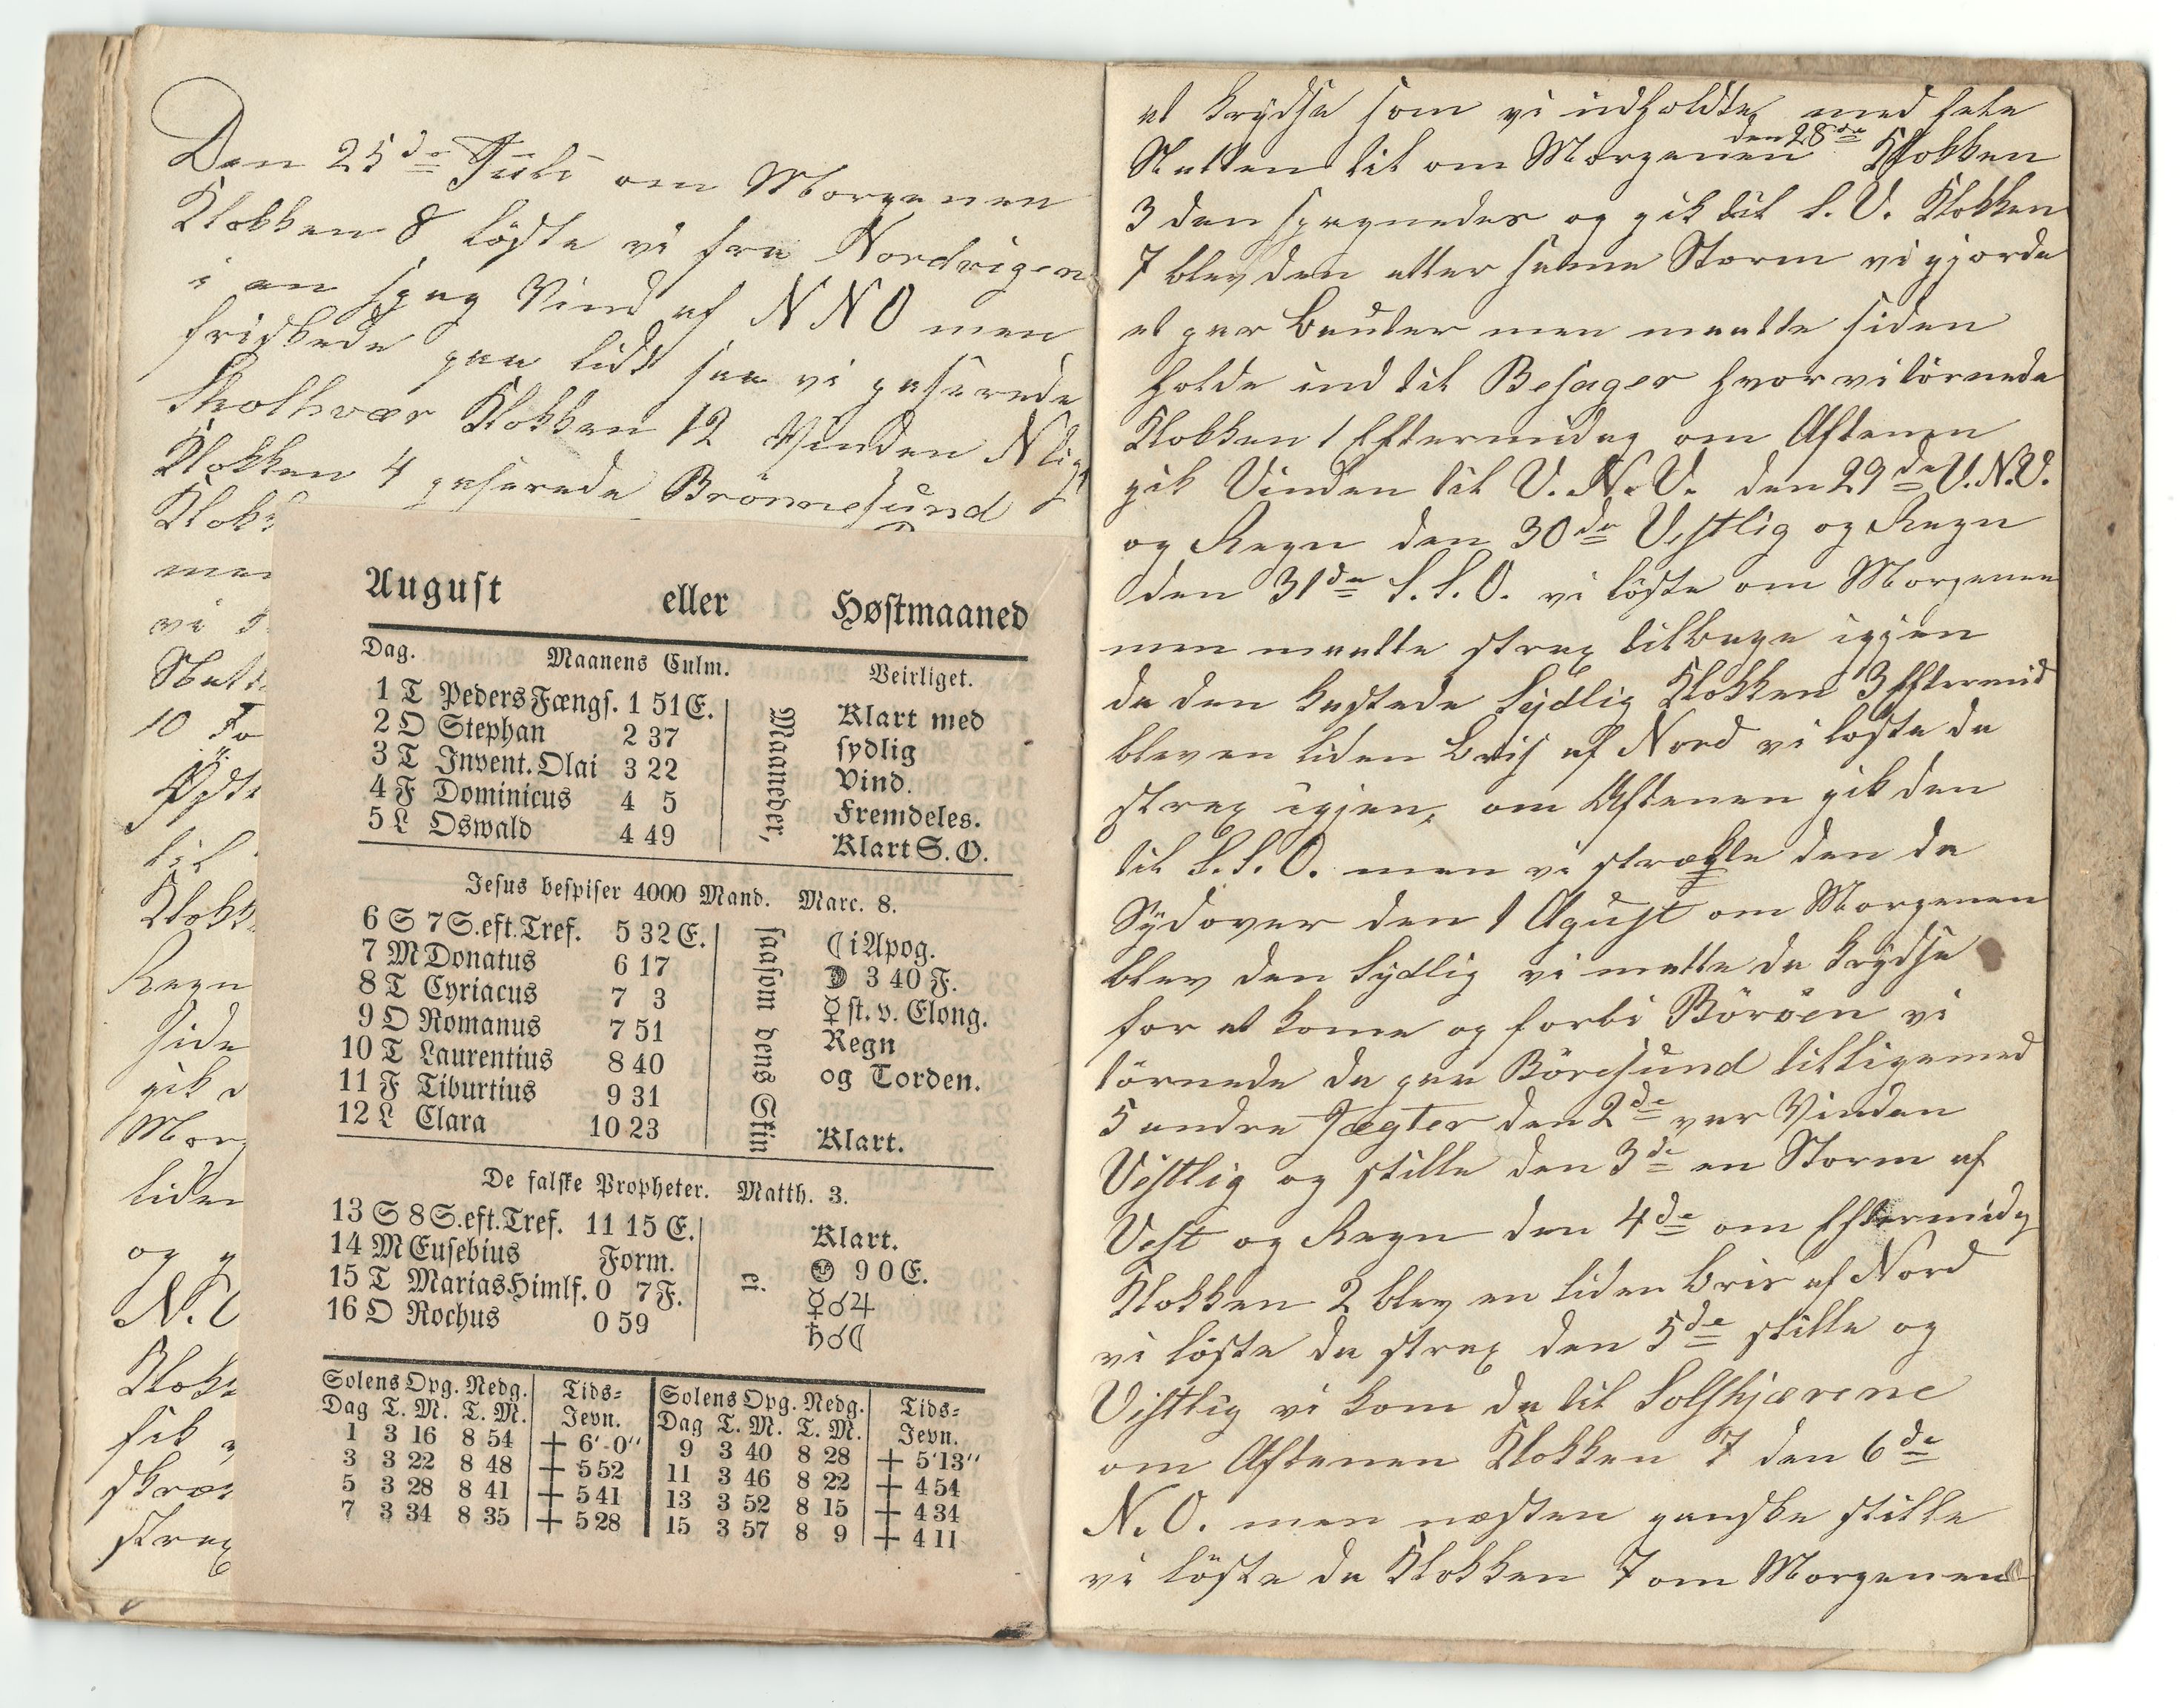 Den 25de Juli om Morgenen
Klokken 8 löste vi fra Nordvigen
i en spag Vind af NNO men
friskede paa lidt saa vi paserede
Skolhvær Klokken 12 Vinden Nlig
Klokken 4 paserede Brönnesund
Klok
men
vi
Natt
10
til
Klokk
Regn
side
gik
Mor
liden
og
N.
Klok
fik
strax
August eller Høstmaaned
Dag. Maanens Culm. Veirliget.
1 T PedersFængs. 1 51 E. Klart med
2 O Stephan 2 37 sydlig
3 T Invent. Olai 3 22 Vind.
4 F Dominicus 4 5 Fremdeles.
5 L Oswald 4 49 Klart S. O.
Maaneder,
Jesus bespiser 4000 Mand. Marc. 8.
6 S 7 S. eft. Tref. 5 32 E. ☾ i Apog.
7 M Donatus 6 17 ☽ 3 40 F.
8 T Cyriacus 7 3 ☿ st. v. Elong.
9 O Romanus 7 51 Regn
10 T Laurentius 8 40 og Torden.
11 F Tiburtius 9 31
12 L Clara 10 23 Klart.
saasom dens Skin
De falske Propheter. Matth. 3.
13 S 8 S. eft. Tref. 11 15 E. Klart.
14 M Eusebius Form. 9 0 E.
15 T Marias Himlf. 0 7 F. ☿☌♃
16 O Rochus 0 59 ♄☌☾
ei
Solens Opg. Nedg. Tids- Solens Opg. Nedg. Tids-
Dag T. M. T. M. Jevn. Dag T. M. T. M. Jevn.
1 3 16 8 54 + 6'-0'' 9 3 40 8 28 + 5'13''
3 3 22 8 48 + 5 52 11 3 46 8 22 + 4 54
5 3 28 8 41 + 5 41 13 3 52 8 15 + 4 34
7 3 34 8 35 + 5 28 15 3 57 8 9 + 4 11
at krydse som vi udholdte med hele
Natten til om Morgenen den 28de Klokken
3 den spagnedes og gik til S. V. Klokken
7 blev den atter samme Storm vi gjorde
et par bauter men maatte siden
holde ind til Besager hvor vi törnede
Klokken 1 Eftermidag om Aftenen
gik Vinden til V. N. V. den 29de V. N. V.
og Regn den 30de Vestlig og Regn
den 31de S. S. O. vi löste om Morgenen
men maatte strax tilbage igjen
da den kastede Sydlig Klokken 3 Eftermid
blev en liden bris af Nord vi löste da
strax igjen, om Aftenen gik den
til S. S. O. men vi strækte den da
Sydover den 1 Agust om Morgenen
blev den Sydlig vi matte da krydse
for at kome og forbi Böröen vi
törnede da paa Börösund tilligemed
5 andre Jægter den 2de var Vinden
Vestlig og stille den 3de en Storm af
Vest og Regn den 4de om Eftermidg
Klokken 2 blev en liden bris af Nord
vi löste da strax den 5de stille og
Vestlig vi kom da til Solskjærene
om Aftenen Klokken 7 den 6de
N. O. men næsten ganske stille
vi löste da Klokken 7 om Morgenen